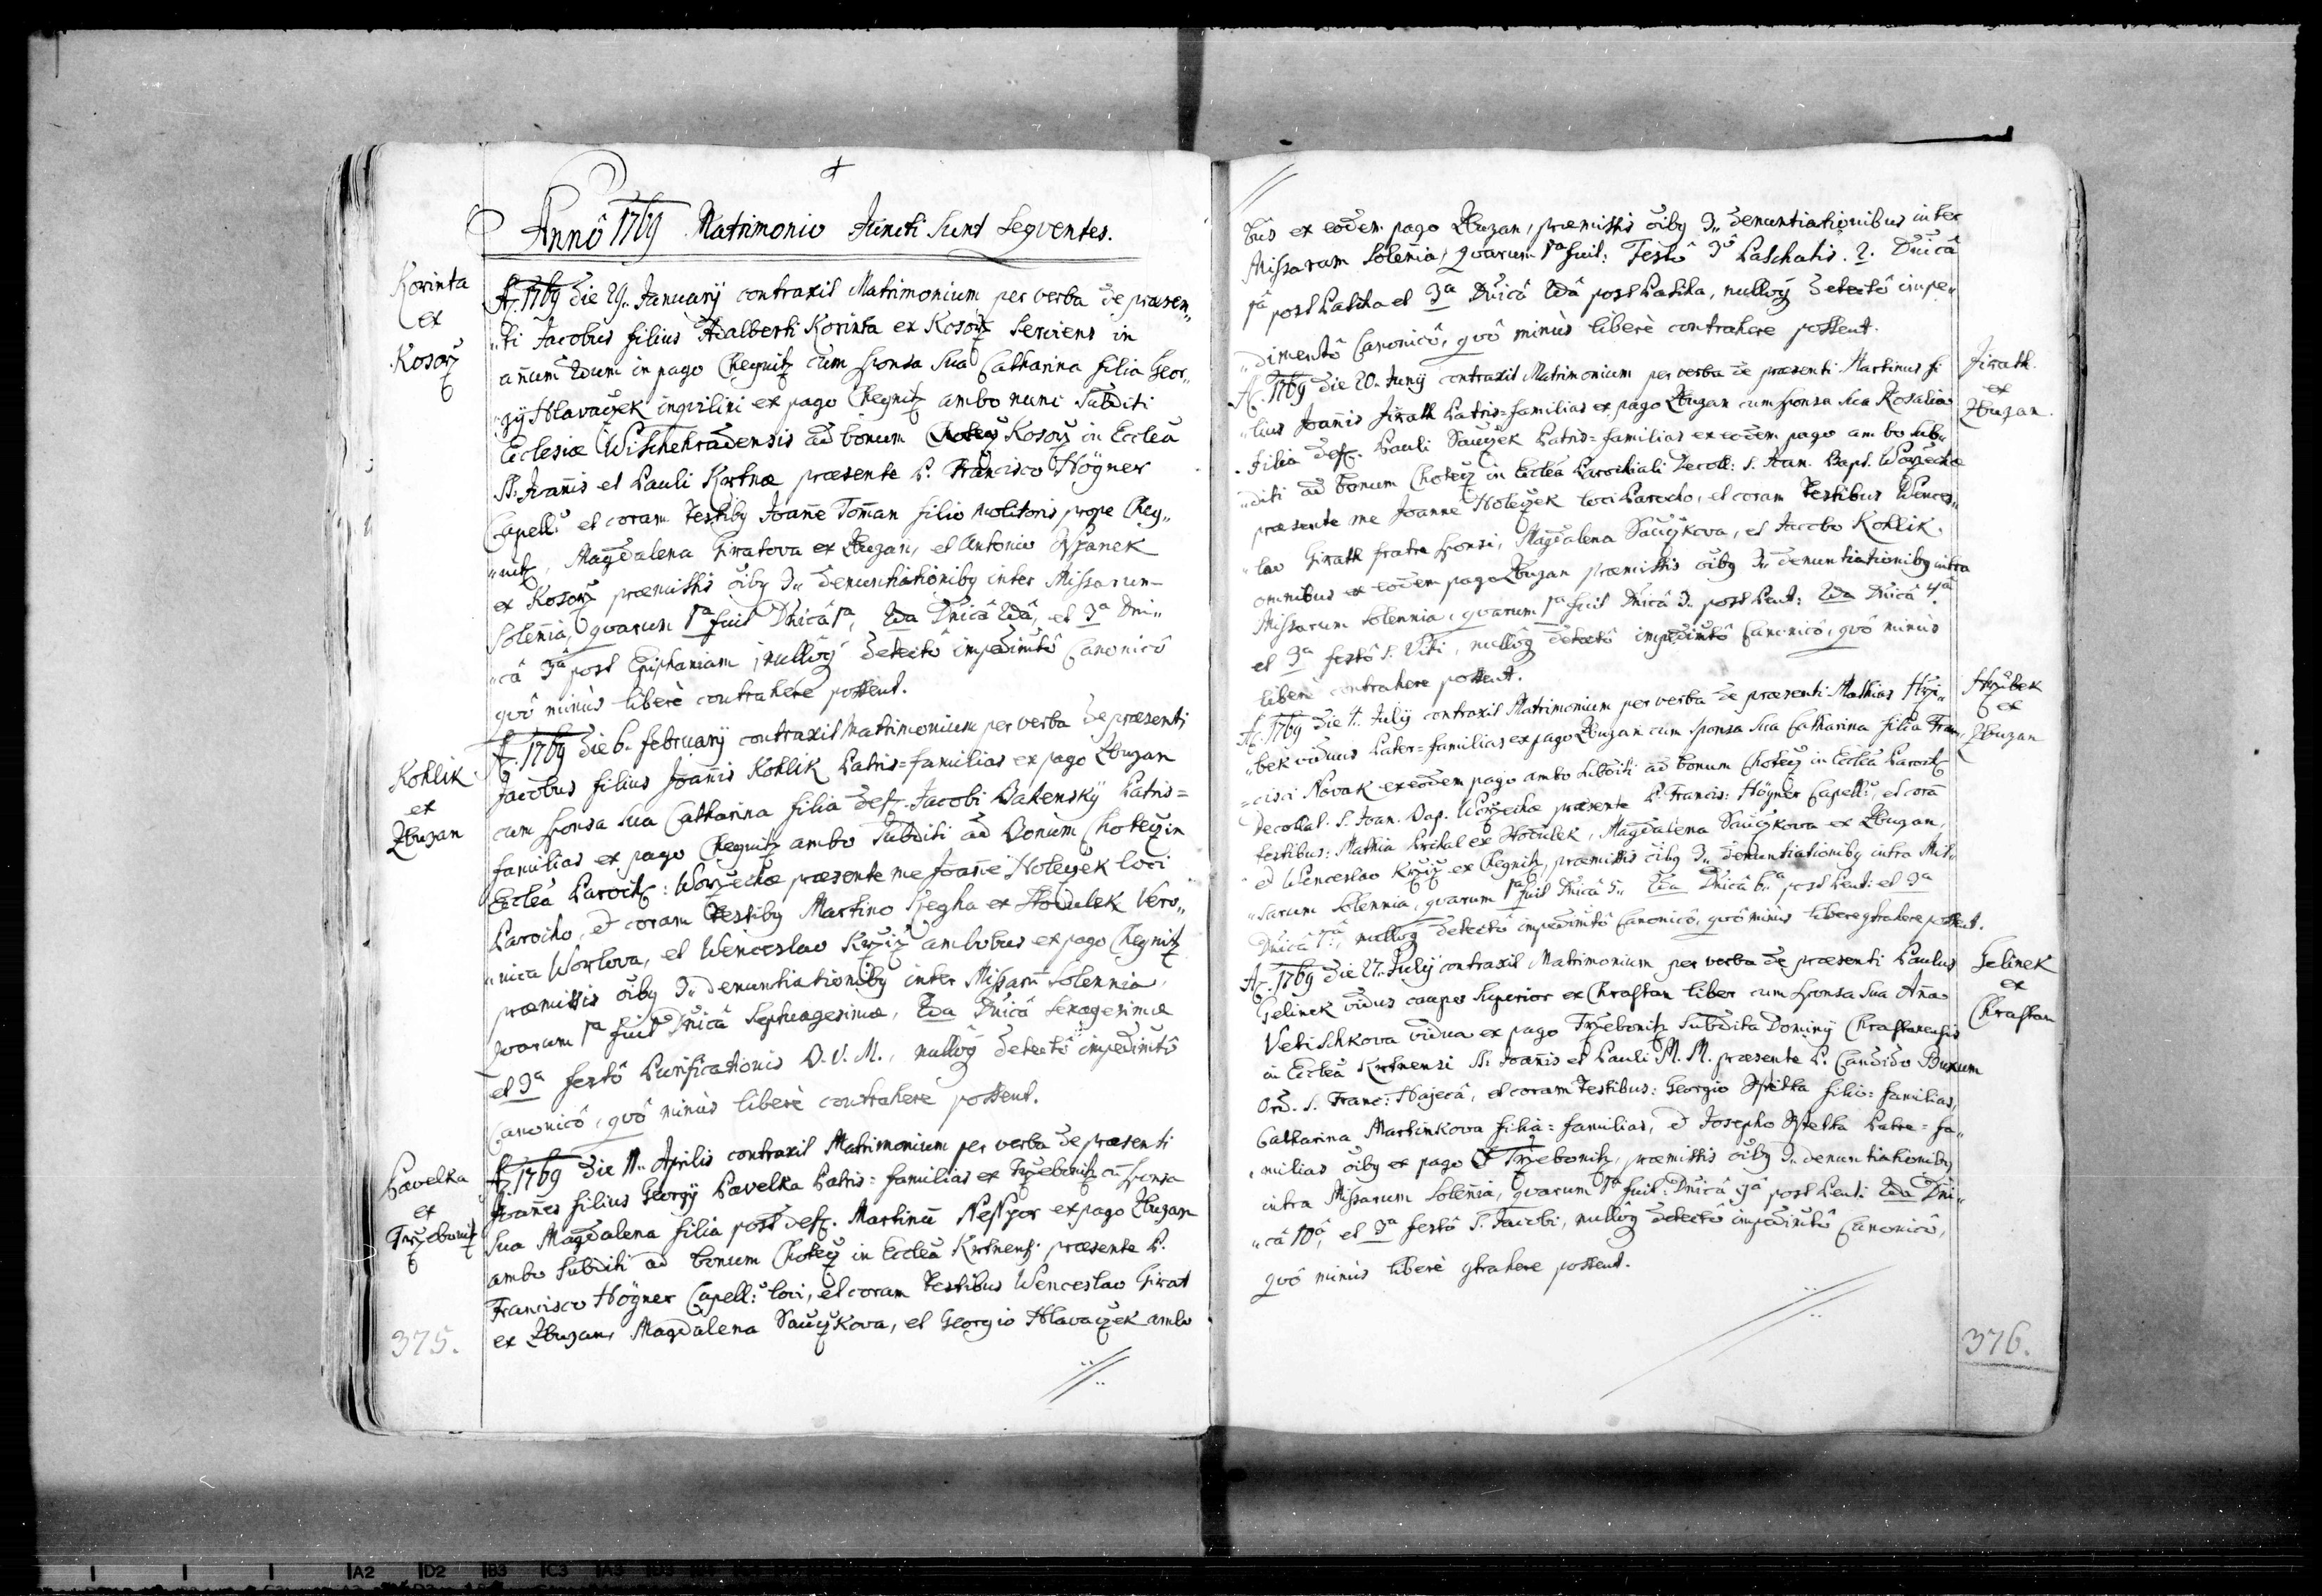 Annô 1769 Matrimonio Juncti Sunt Seqventes.
Korinta
ex
Kosorz
A. 1769 die 29. Januarij contraxit Matrimonium per verba de præsen„
„ti Jacobus filius Adalberti Korinta ex Kosorz serviens in
añum 2dum in pago Chegnitz cum sponsa sua Catharina filia Geor„
„gij Hlavaczek inqvilini ex pago Chegnitz ambo nunc Subditi
Ecclesiæ Wischehradensis ad bonum Kosorz in Ecclea
SS. Joañis et Pauli Krtnæ præsente P. Francisco Högner
Capell: et coram testibq Joañe Toman filio molitoris prope Cheg„
„nitz, Magdalena Giratova ex Zbuzan, et Antonio Spanek
ex Kosorz præmissis oibq 3„ denuntiationibq inter Missarum
Soleñia, qvarum 1a fuit Dnicâ 1a, 2da Dnicâ 2dâ, et 3a Dni„
„câ 3â post Epiphaniam, nulloq detectô impedimtô Canonicô
qvô minùs liberè contrahere possent.
Kohlik
ex
Zbuzan
A. 1769 die 6. februarij contraxit Matrimonium per verba de præsenti
Jacobus filius Joañis Kohlik Patris=familias ex pago Zbuzan
cum sponsa sua Catharina filia def. Jacobi Bakensky Patris=
familias ex pago Chegnitz ambo Subditi ad Bonum Chotecz in
Ecclea Paroch: Worzechæ præsente me Joañe Holeczek loci
Parocho, et coram testibq Martino Rzegha ex Hodulek Vero„
„nica Worlova, et Wenceslao Krziz ambobus ex pago Chegnitz
præmissis oibq 3„ denuntiationibq inter Missarũ Solennia,
qvarum 1a fuit Dnicâ Septuagesimæ, 2da Dnicâ Sexagesimæ
et 3a festô Purificationis B. V. M., nulloq detectô impedimtô
Canonicô, qvô minùs liberè contrahere possent.
Pavelka
ex
Trzebonitz
A. 1769 die 11. Aprilis contraxit Matrimonium per verba de præsenti
Joañes filius Georgij Pavelka Patris=familias ex Trzebonitz cũ sponsa
sua Magdalena filia post def. Martinũ Nespor ex pago Zbuzan
ambo Subditi ad bonum Chotecz in Ecclea Krtnensi præsente P.
Francisco Högner Capell: loci, et coram testibus Wenceslao Girat
ex Zbuzan, Magdalena Sauczkova, et Georgio Hlavaczek ambo
375.
bus ex eodem pago Zbuzan, præmissis oibq 3„ denuntiationibus inter
Missarum Soleñia, qvarum 1a fuit: Festô 3ô Paschatis. 2. Dnicâ
1â post Pascha et 3a Dnicâ 2dâ post Pascha, nulloq detectô impe„
„dimentô Canonicô, qvô minùs liberè contrahere possent.
Jirath.
ex
Zbuzan.
A. 1769 die 20. Junij contraxit Matrimonium per verba de præsenti Martinus fi
„lius Joañis Jirath Patris=familias ex pago Zbuzan cum sponsa sua Rosalia
filia def. Pauli Sauczek Patris=familias ex eodem pago ambo sub„
„diti ad bonum Chotecz in Ecclea Parochiali Decoll: S. Joan. Bapt. Worzechæ
præsente me Joanne Holeczek loci Parocho, et coram testibus Wences„
„lao Girath fratre sponsi, Magdalena Sauczkova, et Jacobo Kohlik
omnibus ex eodem pago Zbuzan præmissis oibq 3„ denuntiationibq intra
Missarum Solennia, qvarum 1a fuit Dnicâ 3. post Pent: 2da Dnicâ 4â
et 3a festô S. Viti, nulloq detectô impedimtô Canonicô, qvô minùs
liberè contrahere possent.
Hrzibek
ex
Zbuzan
A. 1769 die 4. Julij contraxit Matrimonium per verba de præsenti Mathias Hrzi„
„bek viduus Pater=familias ex pago Zbuzan cum sponsa sua Catharina filia Fran„
=cisci Novak ex eodem pago ambo subditi ad bonum Chotecz in Ecclea Paroch:
Decollat. S. Joan. Bap. Worzechæ præsente P. Francis: Högner Capell:, et corã
testibus: Mathia Prchal ex Hodulek, Magdalena Sauczkova ex Zbuzan,
et Wenceslao Krziz ex Chegnitz, præmissis oibq 3„ denuntiationibq intra Mis„
„sarum Solennia, qvarum 1a fuit Dnicâ 5„ 2da Dnicâ 6„a post Pent: et 3a
Dnicâ 7â, nulloq detectô impedimtô Canonicô, qvô minùs liberè gtrahere possent.
Gelinek
ex
Chrastan
A. 1769 die 27. Julij contraxit Matrimonium per verba de præsenti Paulus
Gelinek vidus caupo Superior ex Chrastan liber cum sponsa sua Aña
Vetischkova vidua ex pago Trzebonitz Subdita Dominij Chrastanensis
in Ecclea Krtnensi SS. Joañis et Pauli M. M. præsente P. Candido Buxum
Ord. S. Franc: Hajecâ, et coram testibus: Georgio Spitka filio=familias,
Catharina Martinkova filia=familias, et Josepho Spetka Patre=fa„
„milias oibq ex pago Trzebonitz, præmissis oibq 3„ denuntiationibq
intra Missarum Soleñia, qvarum 1a fuit: Dnicâ 9â post Pent: 2da Dni„
„câ 10â, et 3a festô S. Jacobi, nulloq detectô impedimtô Canonicô,
qvô minùs liberè gtrahere possent.
376.